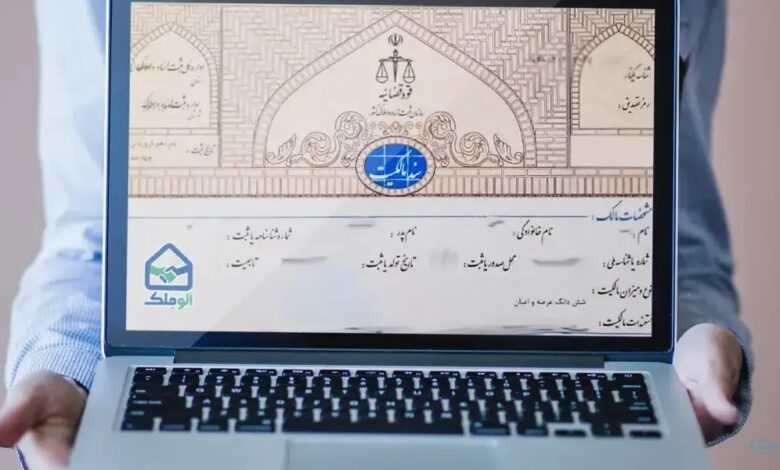 قوه قضائیه
سازمان ثبت اسناد و املاک کشور
شناسه یکتا :
رمز تصدیق :
اداره کل ثبت اسناد و املاک
استان
تاریخ ثبت :
سند مالکیت
مشخصات مالک :
نام : نام خانوادگی : نام پدر : شماره شناسنامه یا ثبت :
شماره یا شناسه ملی : محل صدور یا ثبت : تاریخ تولد یا ثبت : تابعیت :
نوع و میزان مالکیت :
شش دانگ عرصه و اعیان
مستندات مالکیت :
الوملک